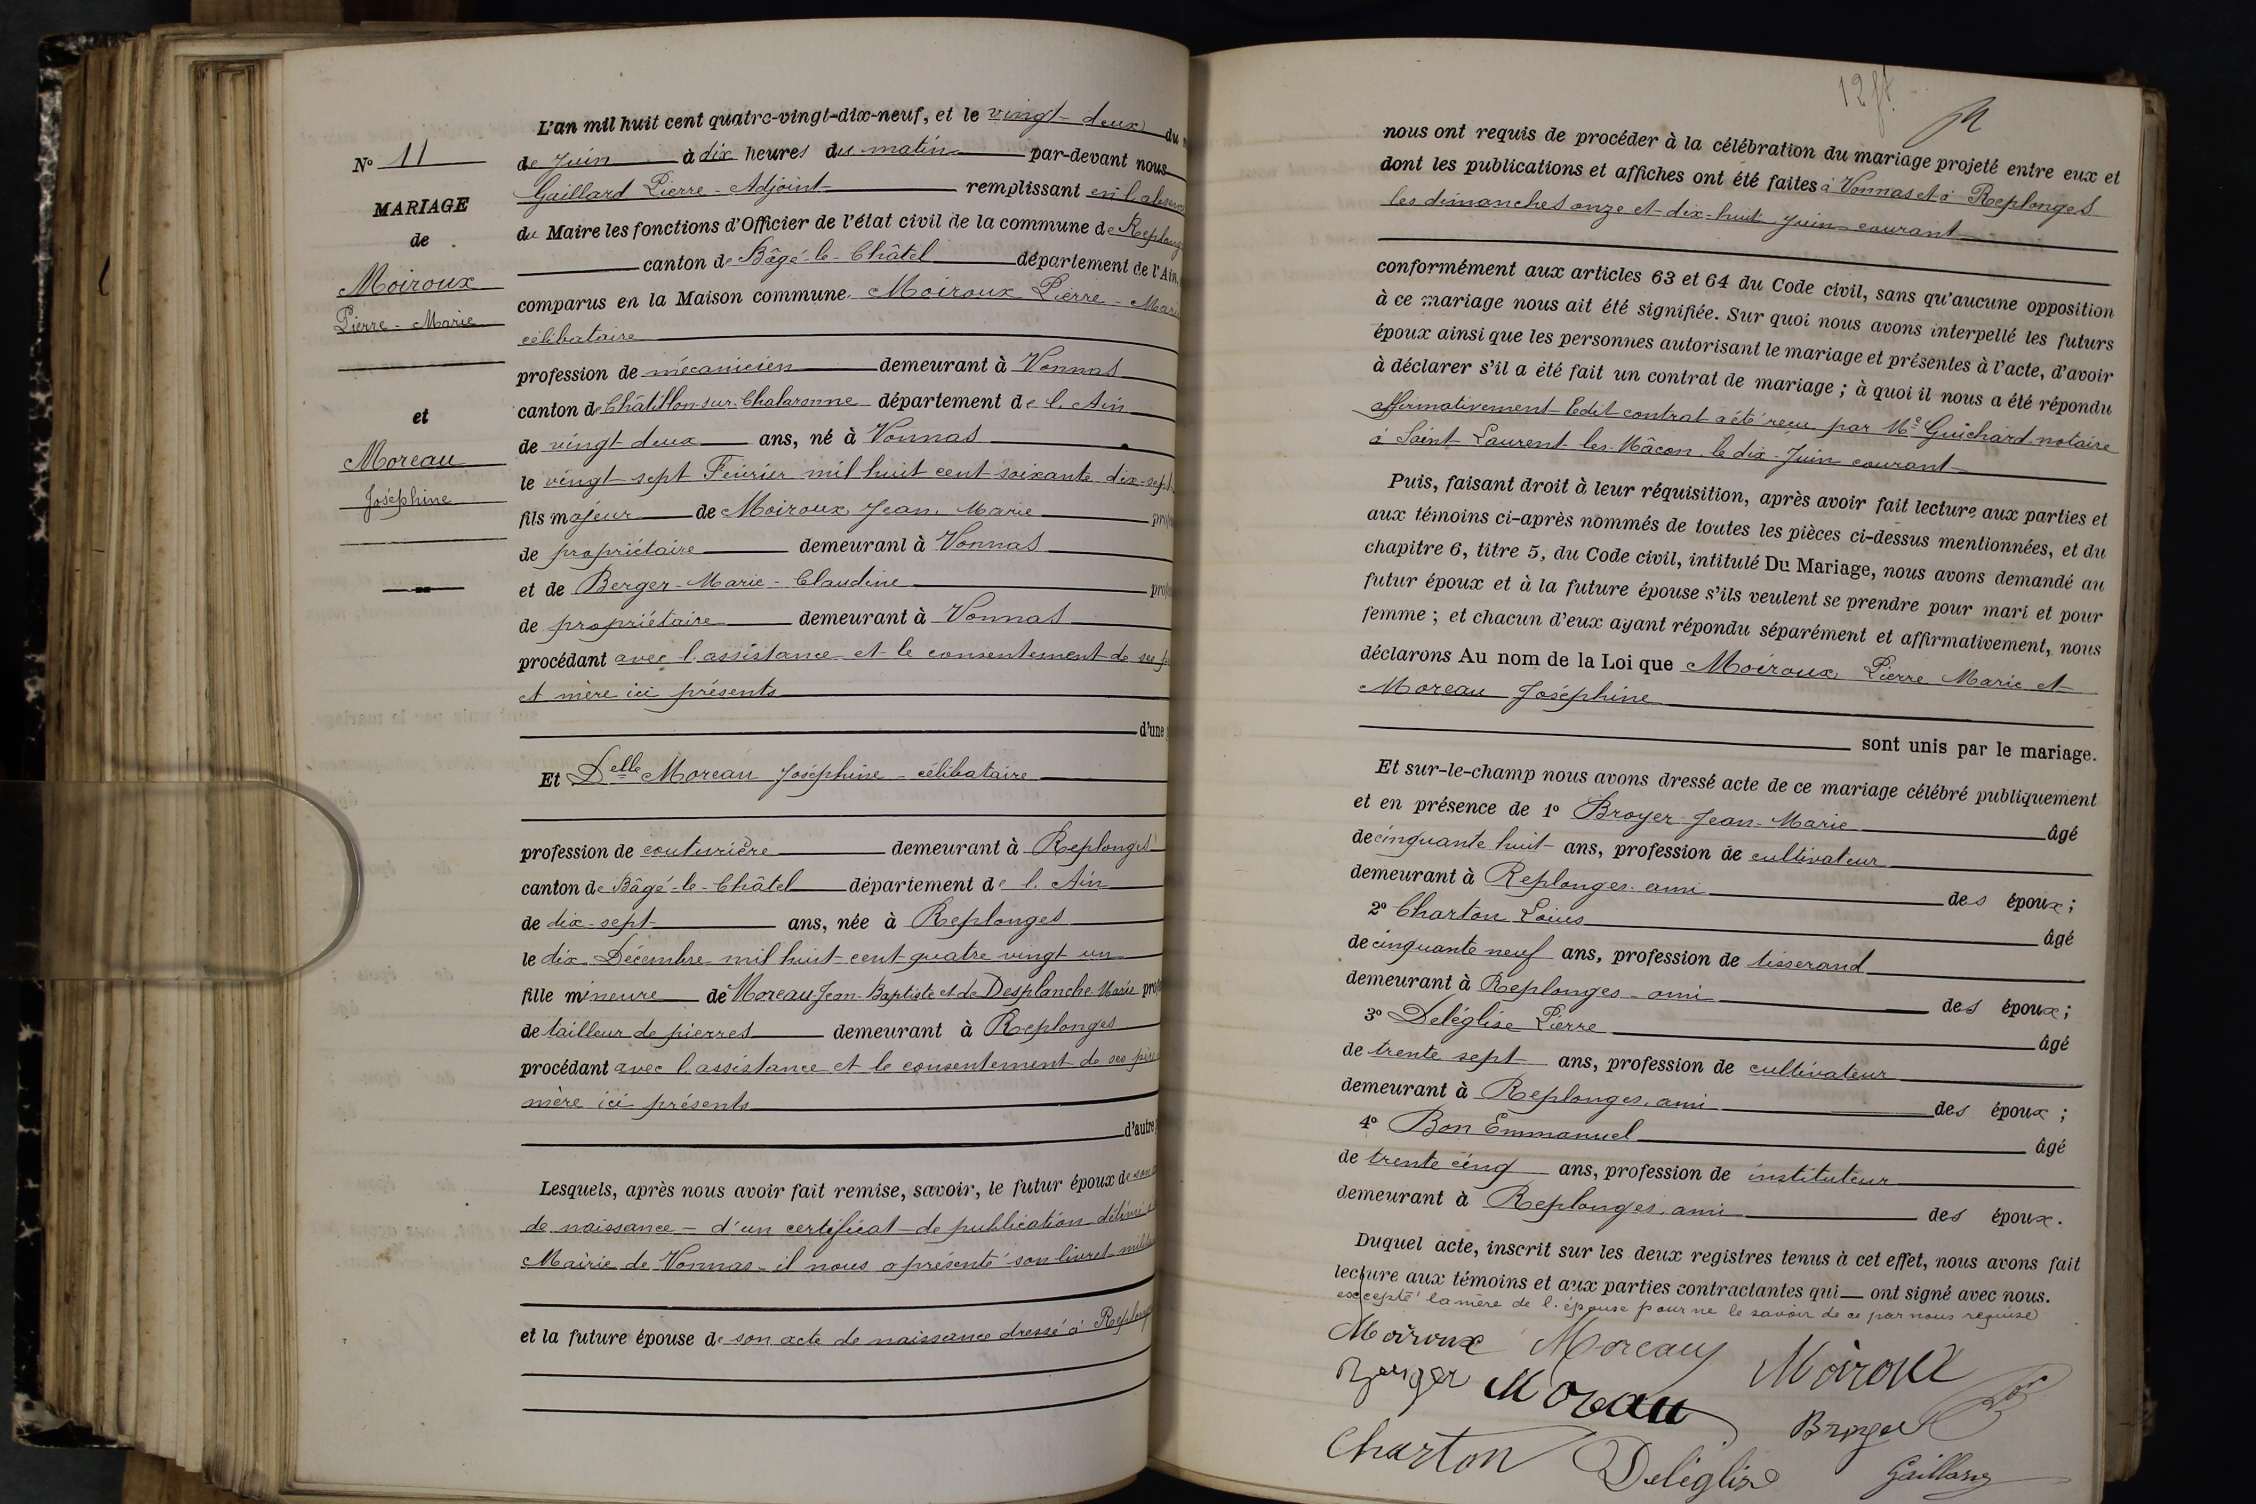 L'an mil huit cent quatre-vingt-dix-neuf, et le vingt-deux du
N° 11
de Juin à dix heures du matin par-devant nous
Gaillard Pierre - Adjoint remplissant en l'absence
MARIAGE
du Maire les fonctions d'Officier de l'état civil de la commune de Replonges
de
canton de Bâgé-le-Châtel département de l'Ain,
Moiroux
comparus en la Maison commune. Moiroux Pierre-Marie
Pierre-Marie
célibataire
profession de mécanicien demeurant à Vonnas
et
canton de Châtillon-sur-Chalaronne département de l'Ain
Moreau
de vingt deux ans, né à Vonnas
Joséphine
le vingt-sept Février mil huit cent soixante dix-sept
fils majeur de Moiroux Jean Marie
de propriétaire demeurant à Vonnas
et de Berger-Marie-Claudine
de propriétaire demeurant à Vonnas
procédant avec l'assistance et le consentement de ses
et mère ici présents
d'une
Et Delle Moreau Joséphine - célibataire
profession de couturière demeurant à Replonges
canton de Bâgé-le-Châtel département de l'Ain
de dix-sept ans, née à Replonges
le dix Décembre mil huit cent quatre vingt un
fille mineure de Moreau Jean-Baptiste et de Desplanche Marie
de tailleur de pierres demeurant à Replonges
procédant avec l'assistance et le consentement de ses père
mère ici présents
d'autre
Lesquels, après nous avoir fait remise, savoir, le futur époux de son
de naissance - d'un certificat de publication délivré
Mairie de Vonnas - il nous a présenté son livret
et la future épouse de son acte de naissance dressé à Replonges
12
nous ont requis de procéder à la célébration du mariage projeté entre eux et
dont les publications et affiches ont été faites à Vonnas et à Replonges
les dimanches onze et dix-huit Juin courant
conformément aux articles 63 et 64 du Code civil, sans qu'aucune opposition
à ce mariage nous ait été signifiée. Sur quoi nous avons interpellé les futurs
époux ainsi que les personnes autorisant le mariage et présentes à l'acte, d'avoir
à déclarer s'il a été fait un contrat de mariage ; à quoi il nous a été répondu
affirmativement ledit contrat a été reçu par Me Guichard notaire
à Saint-Laurent-les-Mâcon le dix Juin courant
Puis, faisant droit à leur réquisition, après avoir fait lecture aux parties et
aux témoins ci-après nommés de toutes les pièces ci-dessus mentionnées, et du
chapitre 6, titre 5, du Code civil, intitulé Du Mariage, nous avons demandé au
futur époux et à la future épouse s'ils veulent se prendre pour mari et pour
femme ; et chacun d'eux ayant répondu séparément et affirmativement, nous
déclarons Au nom de la Loi que Moiroux Pierre Marie et
Moreau Joséphine
sont unis par le mariage.
Et sur-le-champ nous avons dressé acte de ce mariage célébré publiquement
et en présence de 1° Broyer Jean-Marie âgé
de cinquante huit ans, profession de cultivateur
demeurant à Replonges ami des époux ;
2° Charton Loius âgé
de cinquante neuf ans, profession de tisserand
demeurant à Replonges - ami des époux ;
3° Deléglise Pierre âgé
de trente sept ans, profession de cultivateur
demeurant à Replonges ami des époux ;
4° Bon Emmanuel âgé
de trente cinq ans, profession de instituteur
demeurant à Replonges ami des époux.
Duquel acte, inscrit sur les deux registres tenus à cet effet, nous avons fait
lecture aux témoins et aux parties contractantes qui ont signé avec nous.
excepté la mère de l'épouse pour ne le savoir de ce par nous requise
Moiroux Moreau Moiroux
Berger Moreau Broyer
Charton Deléglise Gaillard